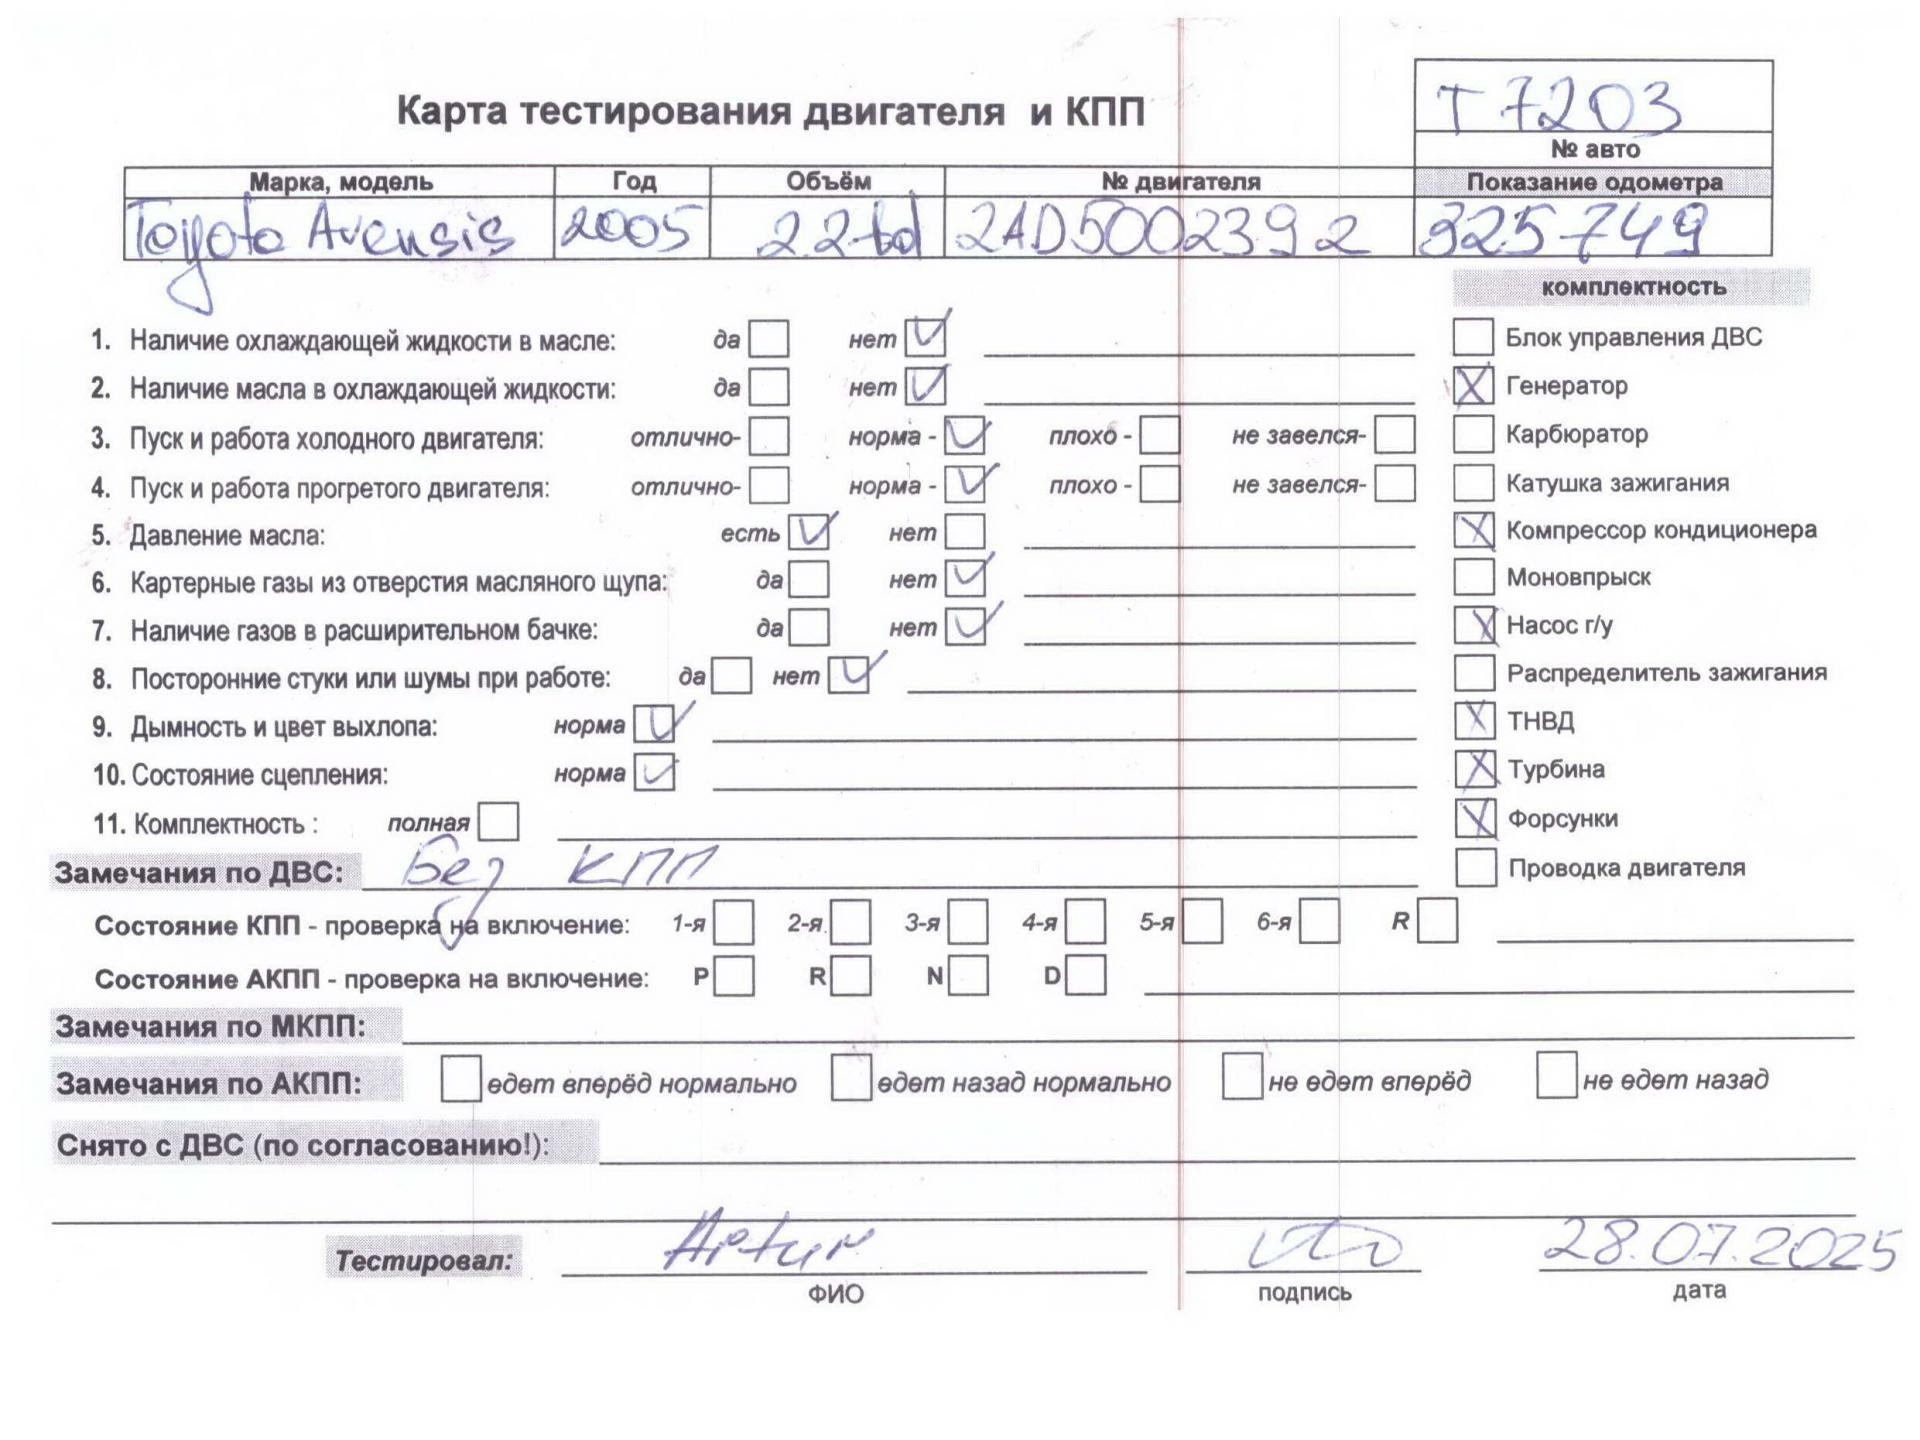 Т 7203
Карта тестирования двигателя и КПП
№ авто
Марка, модель Год Объём № двигателя Показание одометра
Toyota Avensis 2005 2.2 td 2AD5002392 325749
комплектность
1. Наличие охлаждающей жидкости в масле: да нет
Блок управления ДВС
2. Наличие масла в охлаждающей жидкости: да нет
Генератор
3. Пуск и работа холодного двигателя: отлично- норма - плохо - не завелся-
Карбюратор
4. Пуск и работа прогретого двигателя: отлично- норма - плохо - не завелся-
Катушка зажигания
5. Давление масла: есть нет
Компрессор кондиционера
6. Картерные газы из отверстия масляного щупа: да нет
Моновпрыск
7. Наличие газов в расширительном бачке: да нет
Насос г/у
8. Посторонние стуки или шумы при работе: да нет
Распределитель зажигания
9. Дымность и цвет выхлопа: норма
ТНВД
10. Состояние сцепления: норма
Турбина
11. Комплектность : полная
Форсунки
Замечания по ДВС: Без КПП
Проводка двигателя
Состояние КПП - проверка на включение: 1-я 2-я 3-я 4-я 5-я 6-я R
Состояние АКПП - проверка на включение: P R N D
Замечания по МКПП:
Замечания по АКПП: едет вперёд нормально едет назад нормально не едет вперёд не едет назад
Снято с ДВС (по согласованию!):
Тестировал: Artur 28.07.2025
ФИО подпись дата